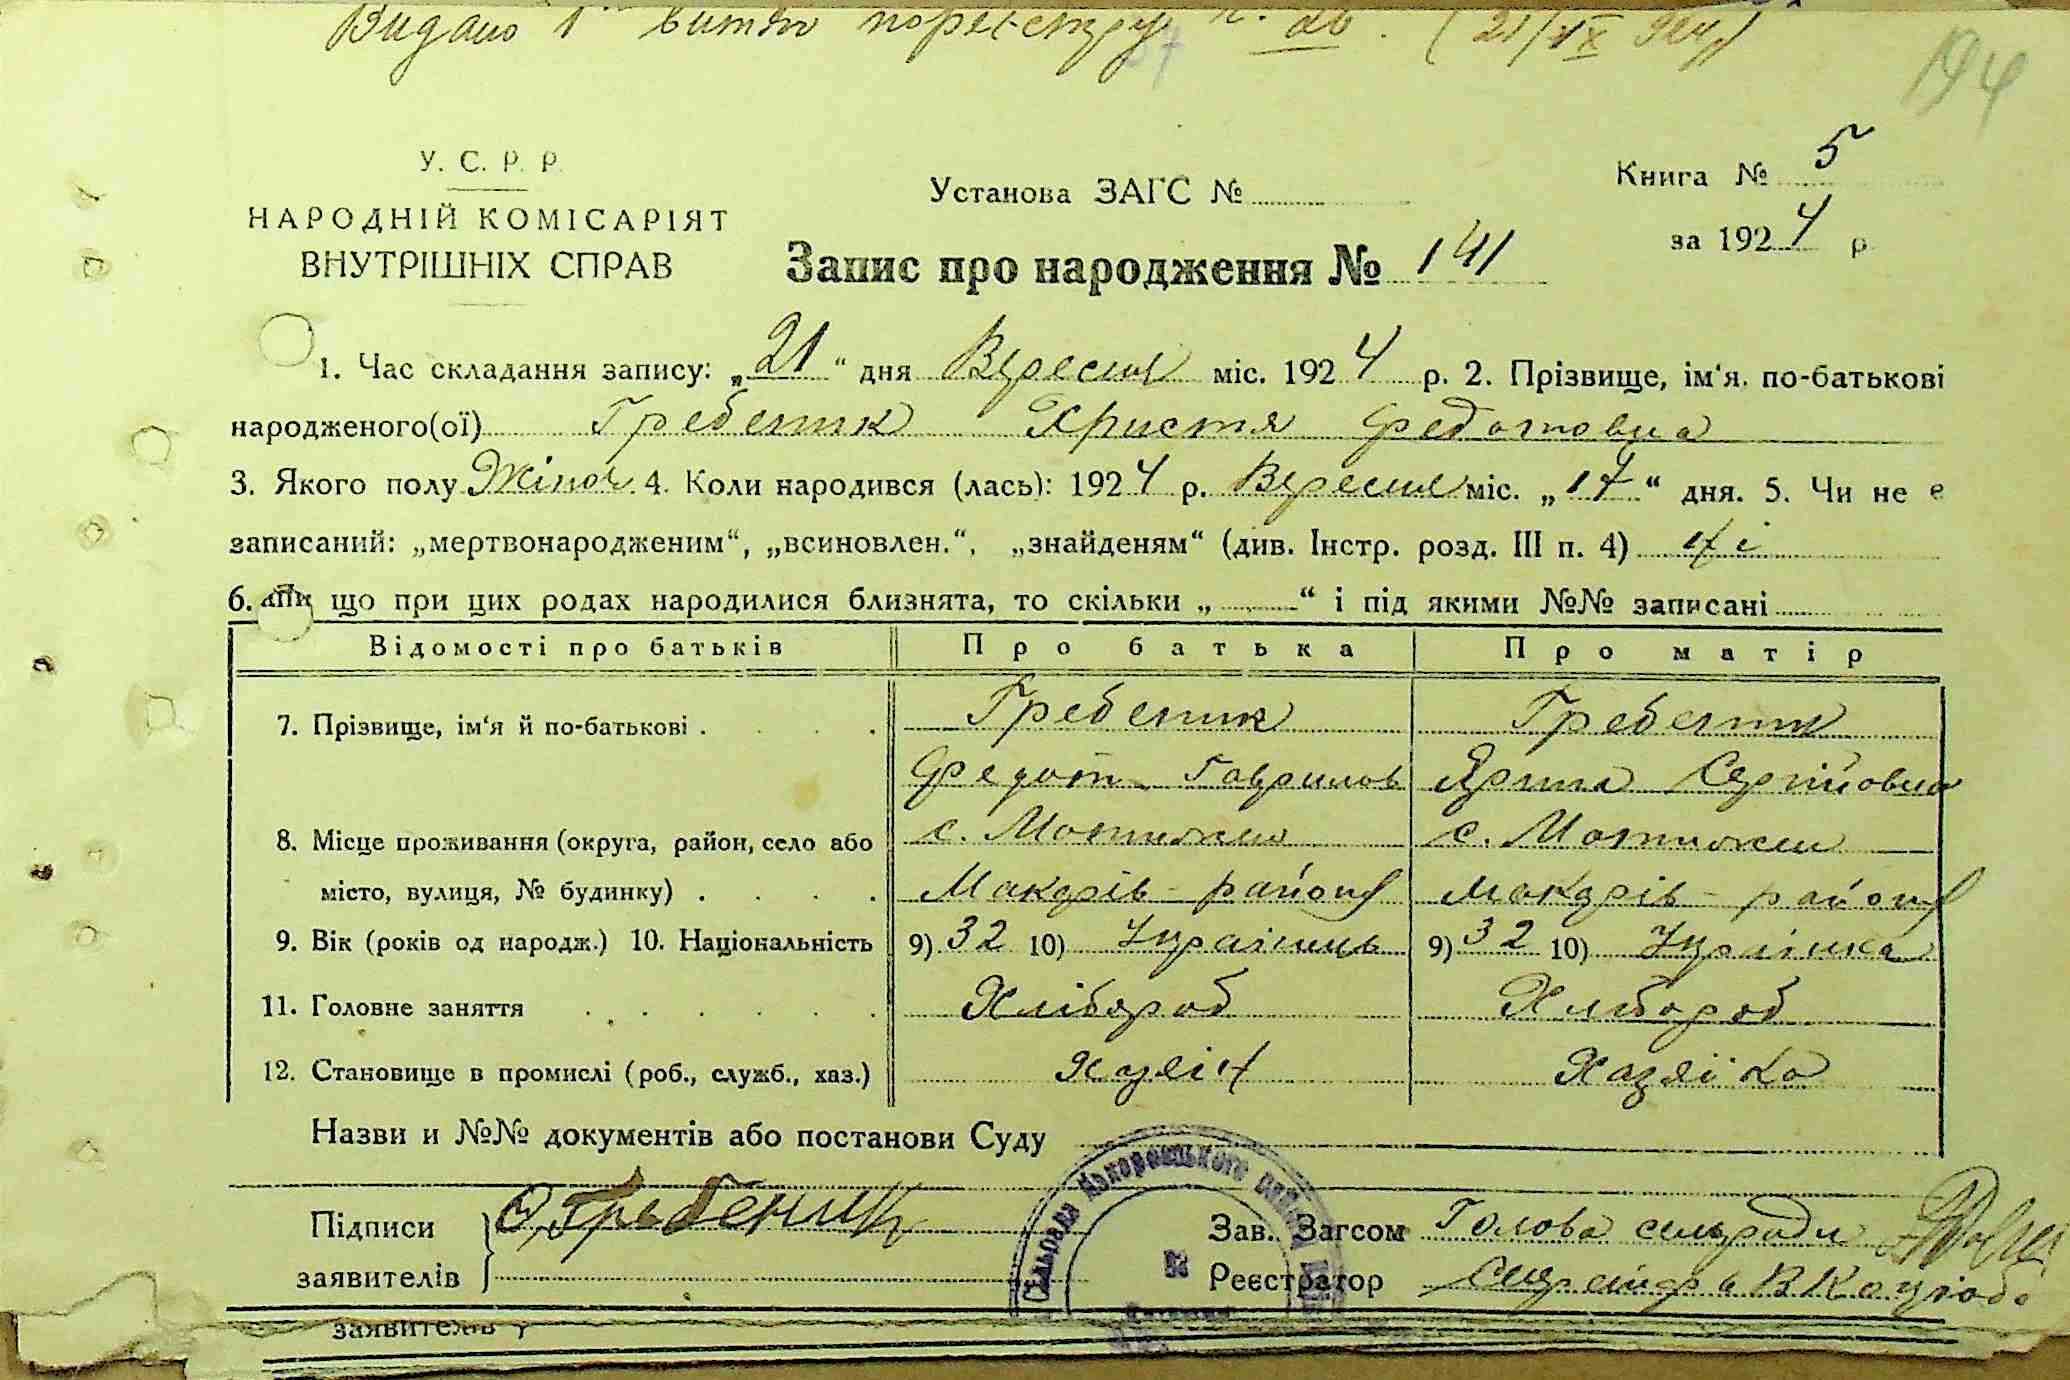 Видано 1 витяг по реєстру ч. 26. (21/IX 924)
194
У. С. Р. Р.
НАРОДНІЙ КОМІСАРІЯТ
ВНУТРІШНІХ СПРАВ
Установа ЗАГС №
Книга № 5
за 1924 р
Запис про народження № 141
1. Час складання запису: „21“ дня Вересня міс. 1924 р. 2. Прізвище, ім‘я. по-батькові
народженого(ої) Гребеник Христя Федотовна
3. Якого полу Жіноч. 4. Коли народився (лась): 1924 р. Вересня міс. „17“ дня. 5. Чи не є
записаний: „мертвонародженим“, „всиновлен.“, „знайденям“ (див. Інстр. розд. III п. 4) Ні
6. що при цих родах народилися близнята, то скільки „ “ і під якими №№ записані
Відомості про батьків Про батька Про матір
7. Прізвище, ім‘я й по-батькові Гребеник Гребеник
Федот Гаврилов Ярина Сергійовна
8. Місце проживання (округа, район, село або с. Мотижин с. Мотижин
місто, вулиця, № будинку) Макарів-району Макарів-району
9. Вік (років од народж.) 10. Національність 9) 32 10) Українць 9) 32 10) Українка
11. Головне заняття Хлібороб Хлібороб
12. Становище в промислі (роб., служб., хаз.) Хазяін Хазяїка
Назви и №№ документів або постанови Суду
Підписи Ф. Гребеник Зав. Загсом Голова сільради
заявителів Реєстратор Секретар В Коцюба
заявителів